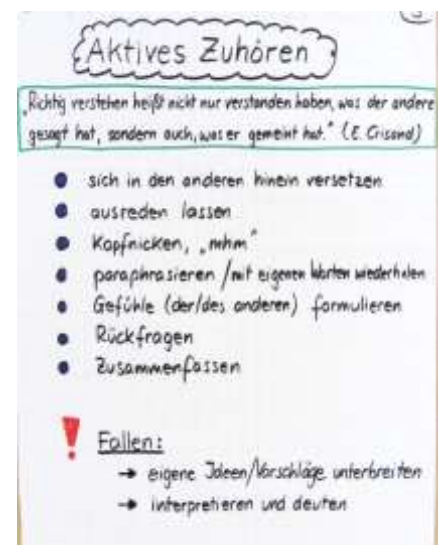 Aktives Zuhören
„Richtig verstehen heißt nicht nur verstanden haben, was der andere
gesagt hat, sondern auch, was er gemeint hat." (E. Crisand)
sich in den anderen hinein versetzen
ausreden lassen
Kopfnicken, „mhm"
paraphrasieren / mit eigenen Worten wiederholen
Gefühle (der/des anderen) formulieren
Rückfragen
Zusammenfassen
! Fallen:
→ eigene Ideen/Vorschläge unterbreiten
→ interpretieren und deuten